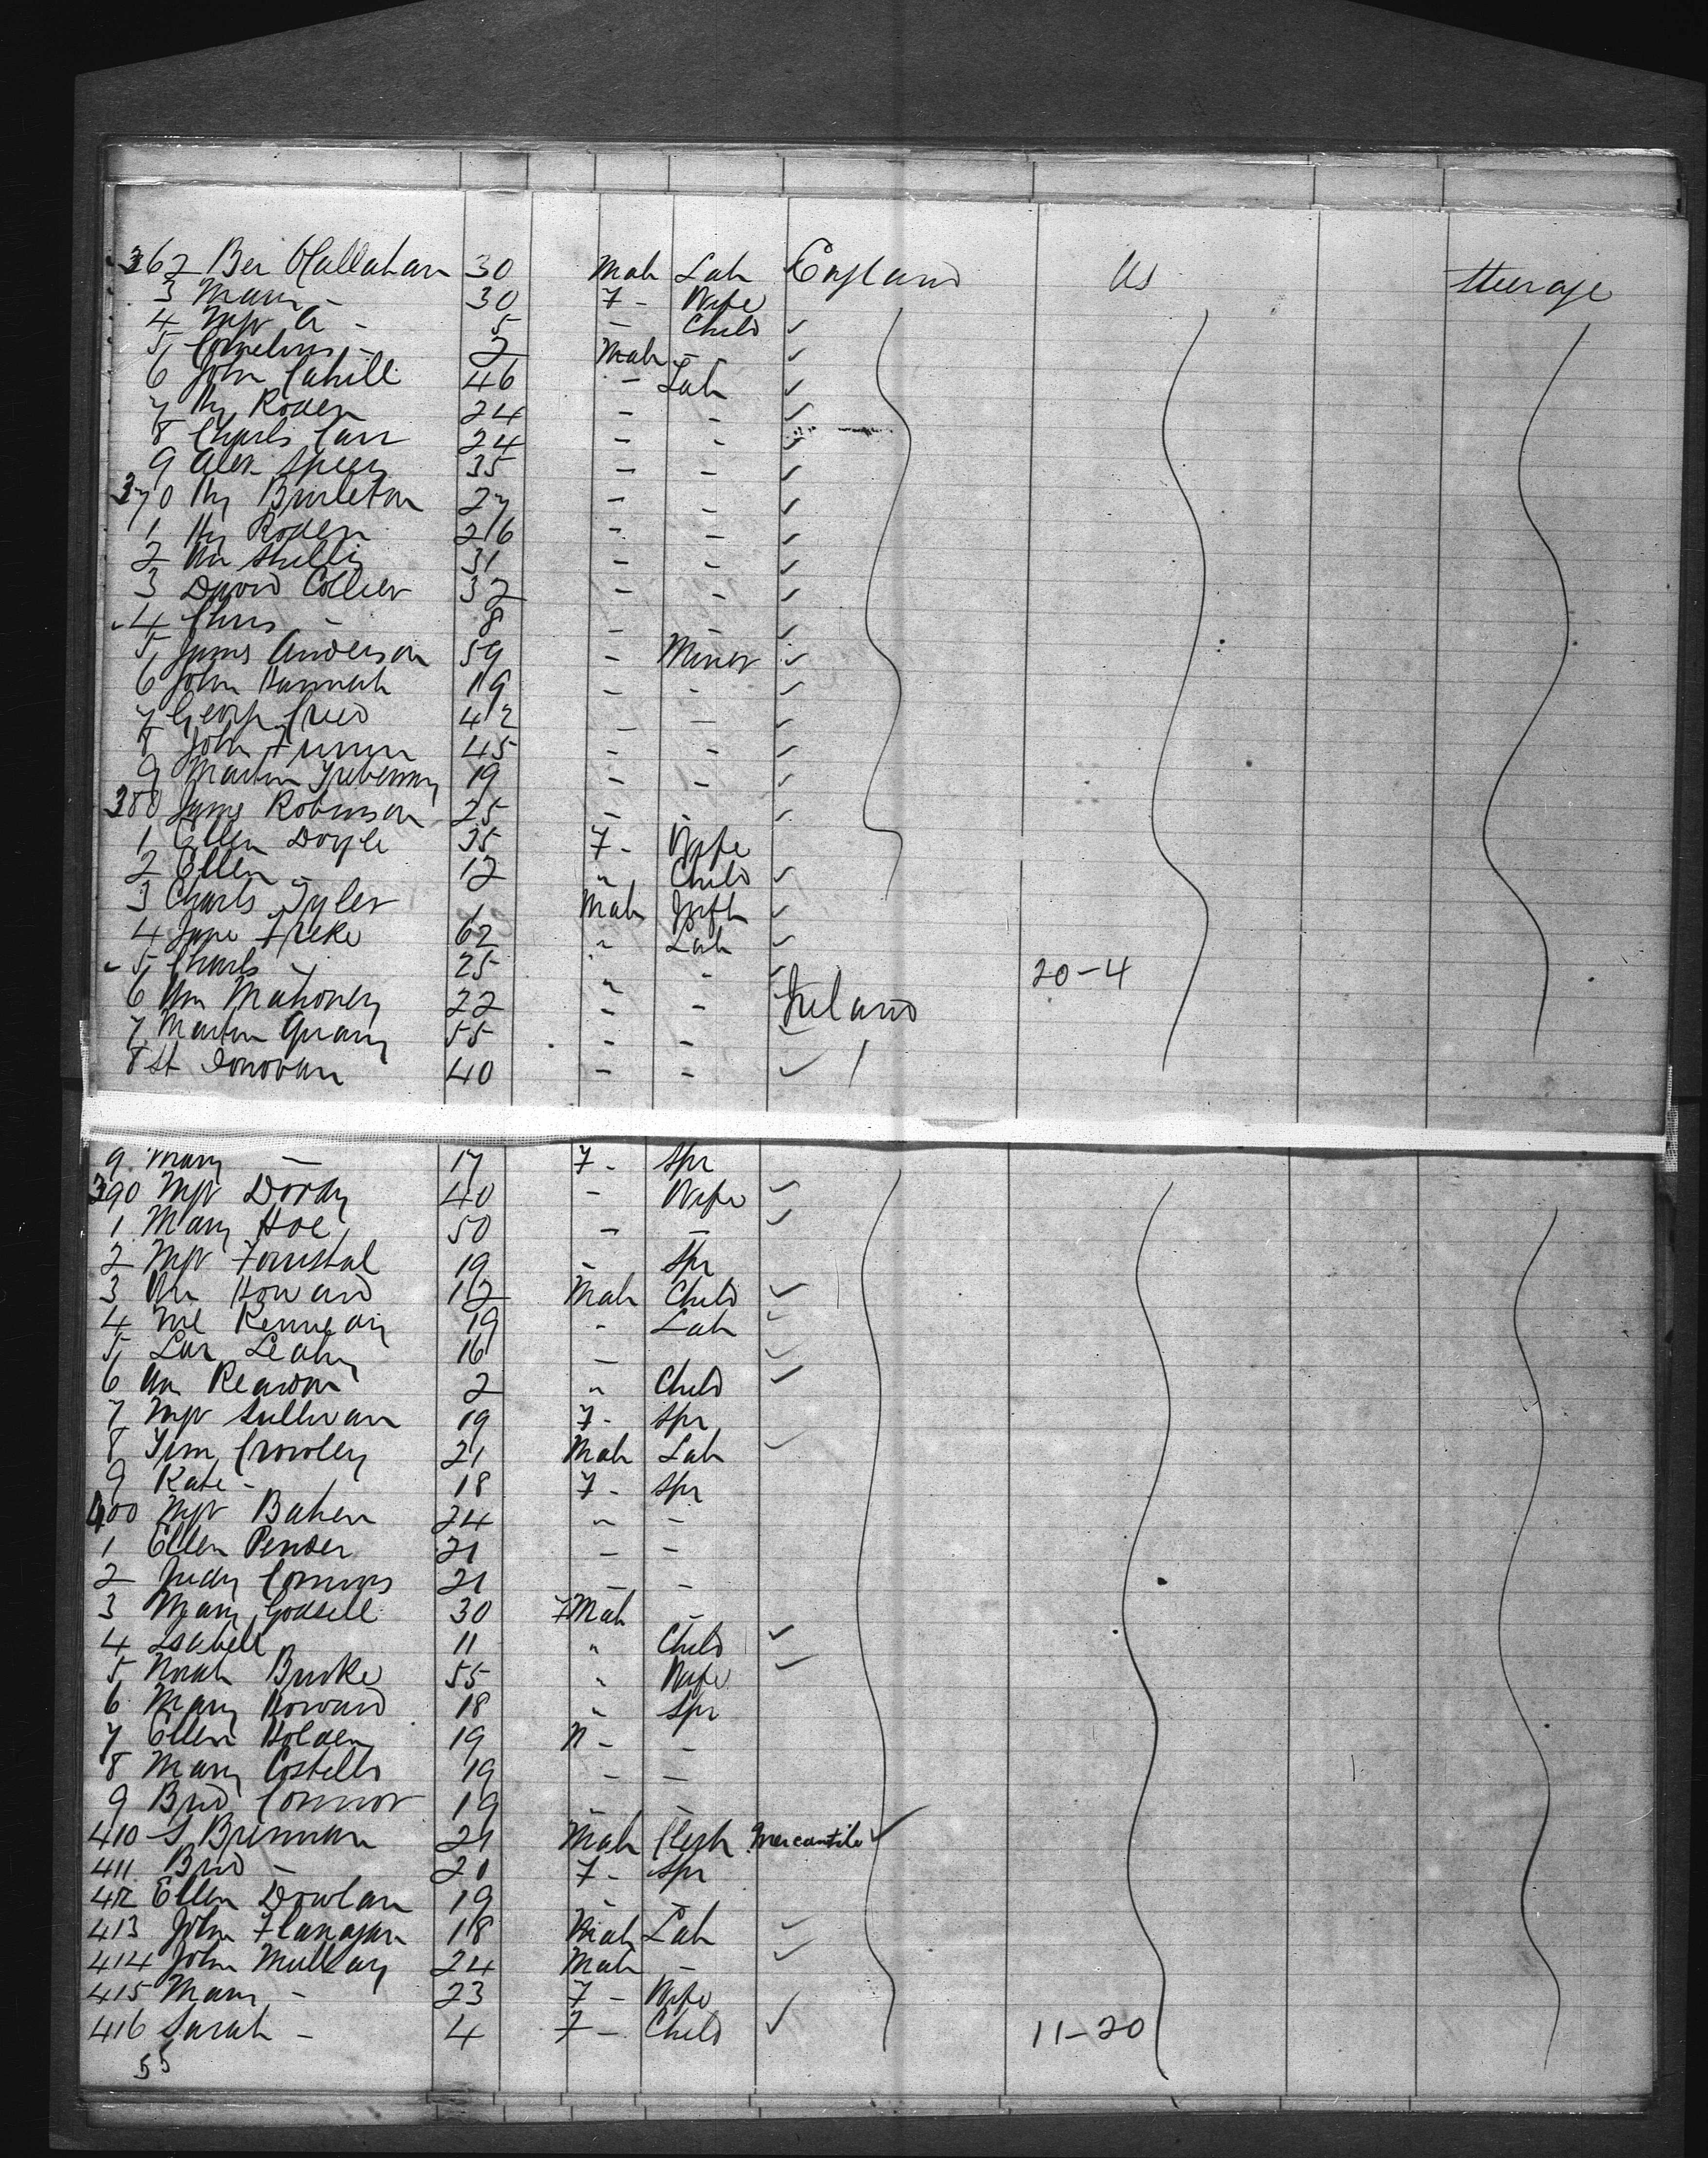 362 Ber OCallahan 30 Male Lab England US Steerage
3 Mary - 30 F - Wife
4 Mgt A - 5 - Child ✓
5 Cornelius - 2 Male - ✓
6 John Cahill 46 - Lab ✓
7 Hy Roden 24 - - ✓
8 Charls Carr 24 - - ✓
9 Alex Speer 35 - - ✓
370 Hy Brereton 27 - - ✓
1 Hy Roden 26 - - ✓
2 Wm 31 - - ✓
3 David Collier 32 - - ✓
4 Chris - 8 - - ✓
5 James Anderson 59 - Miner ✓
6 John Hannah 19 - - ✓
7 George Creed 42 - - ✓
8 John 45 - - ✓
9 Martin 19 - - ✓
380 James Robinson 25 - - ✓
1 Ellen Doyle 35 F - Wife
2 Ellen - 12 " Child ✓
3 Charls Tyler 1 Male Inft ✓
4 Freke 62 " Lab ✓
5 Charls 25 " - ✓ 20-4
6 Wm Mahoney 22 - - Ireland
7 Martin 55 - - ✓
8 St Donovan 40 - - ✓
9 Mary - 17 F - Spr
390 Mgt Doody 40 - Wife ✓
1 Mary Hoe 50 - - ✓
2 Mgt Forristal 19 - Spr
3 Wm Howard 12 Male Child ✓
4 Ml Kennedy 19 - Lab ✓
5 Lar Leahy 16 - ✓
6 Wm Reardon 2 " Child ✓
7 Mgt Sullivan 19 F - Spr
8 Tim Crowley 21 Male Lab ✓
9 Kate - 18 F - Spr
400 Mgt Bahen 24 " -
1 Ellen Pender 21 - -
2 Judy Connors 21 - -
3 Mary Godsell 30 F Male -
4 Isabell 11 " Child ✓
5 Norah Burke 55 " Wife ✓
6 Mary Howard 18 " Spr
7 Ellen Holden 19 -
8 Mary Costello 19 - -
9 Brid Connor 19 - -
410 Brennan 21 Male Clerk Mercantile ✓
411 Brid - 20 F - Spr
412 Ellen Dowlan 19 - -
413 John Flanagan 18 Male Lab ✓
414 John Mullay 24 Male - ✓
415 Mary - 23 F - Wife
416 Sarah - 4 F - Child ✓ 11-20
55